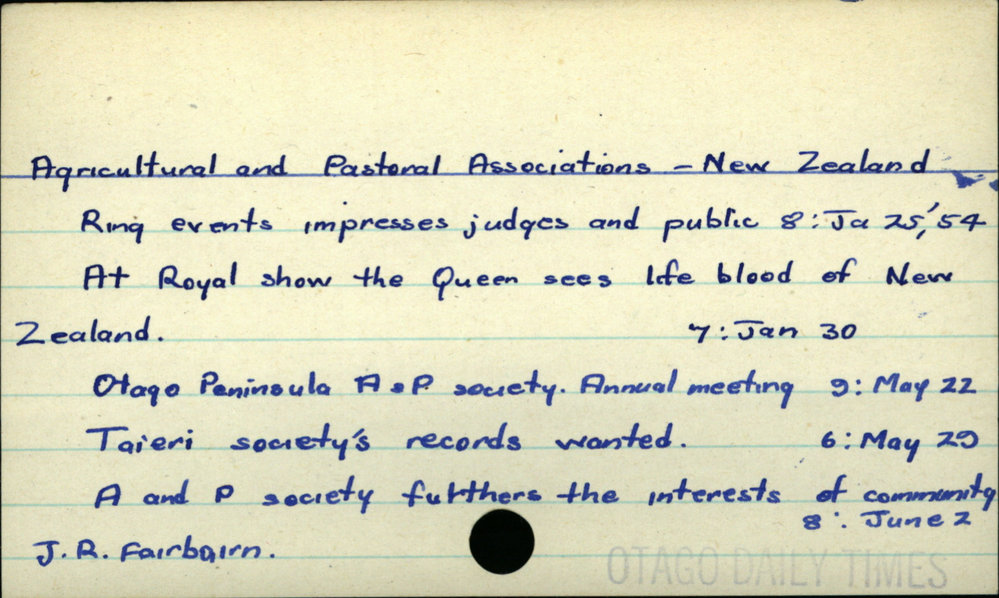 Agricultural and Pastoral Associations - New Zealand
Ring events impresses judges and public 8: Ja 25,'54
At Royal show the Queen sees life blood of New
Zealand. 7: Jan 30
Otago Peninsula A & P society. Annual meeting 9: May 22
Taieri society's records wanted. 6: May 29
A and P society futthers the interests of community
8: June 2
J. R. Fairbairn.
OTAGO DAILY TIMES